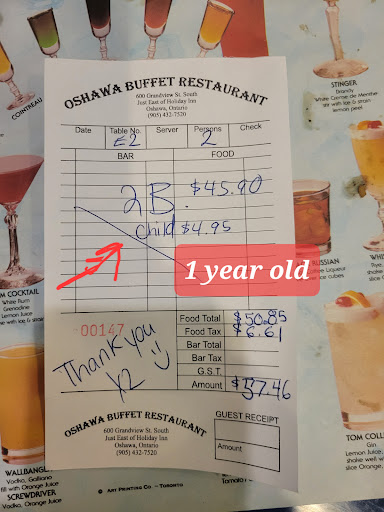 COINTREAU
OSHAWA BUFFET RESTAURANT
600 Grandview St. South
Just East of Holiday Inn
Oshawa, Ontario
(905) 432-7520
Date Table No. Server Persons Check
E2 2
BAR FOOD
2B. $45.90
Child $4.95
1 year old
00147
Thank you
x2
Food Total $50.85
Food Tax $6.61
Bar Total
Bar Tax
G.S.T.
Amount $57.46
OSHAWA BUFFET RESTAURANT
600 Grandview St. South
Just East of Holiday Inn
Oshawa, Ontario
(905) 432-7520
GUEST RECEIPT
Amount
STINGER
Brandy
White Creme de Menthe
stir with ice & strain
lemon peel
M COCKTAIL
White Rum
Grenadine
Lemon Juice
e with ice & strain
RUSSIAN
Coffee Liqueur
ice cubes
WALLBANG
Vodka, Galliano
fill with Orange Juice
SCREWDRIVER
Vodka, Orange Juice
© ART PRINTING CO. - TORONTO
TOM COLL
Gin
Lemon Juice
shake well w
slice Orange